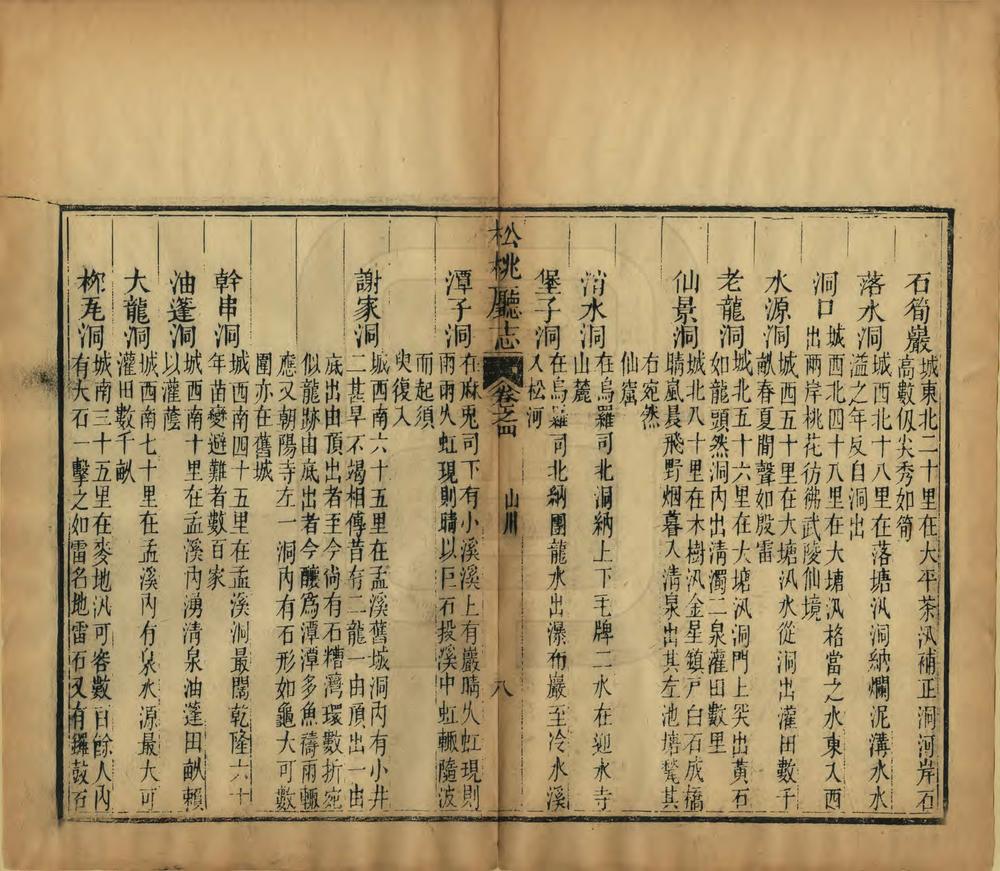 石筍巖城東北二十里在大平茶汛補正洞河岸石
高數仭尖秀如筍
落水洞城西北十八里在落塘汛洞納爛泥溝水水
溢之年反自洞出
洞口城西北四十八里在大塘汛格當之水東入西
出兩岸桃花彷彿武陵仙境
水源洞城西五十里在大塘汛水從洞出灌田數千
畝春夏間聲如殷雷
老龍洞城北五十六里在大塘汛洞門上突出黃石
如龍頭然洞內出清濁二泉灌田數里
仙景洞城北八十里在木樹汛金星鎮戸白石成橋
晴嵐晨飛野烟暮入清泉出其左池塘甃其
右宛然
仙窟
消水洞在烏羅司北洞納上下毛牌二水在迎永寺
山麓
堡子洞在烏羅司北納團龍水出瀑布巖至冷水溪
入松河
松桃廳志 卷之四 山川 八
潭子洞在麻兎司下有小溪溪上有巖晴久虹現則
雨雨久虹現則晴以巨石投溪中虹輙隨波
而起須
臾復入
謝家洞城西南六十五里在孟溪舊城洞內有小井
二甚旱不竭相傳昔有二龍一由頂出一由
底出由頂出者至今尚有石糟灣環數折宛
似龍跡由底出者今釀爲潭潭多魚禱雨輙
應又朝陽寺左一洞內有石形如龜大可數
圍亦在舊城
幹串洞城西南四十五里在孟溪洞最闊乾隆六十
年苗變避難者數百家
油蓬洞城西南十里在孟溪內湧清泉油蓬田畝賴
以灌蔭
大龍洞城西南七十里在孟溪內有泉水源最大可
灌田數千畝
柳瓦洞城南三十五里在麥地汛可容數百餘人內
有大石一擊之如雷名地雷石又有鑼鼓石